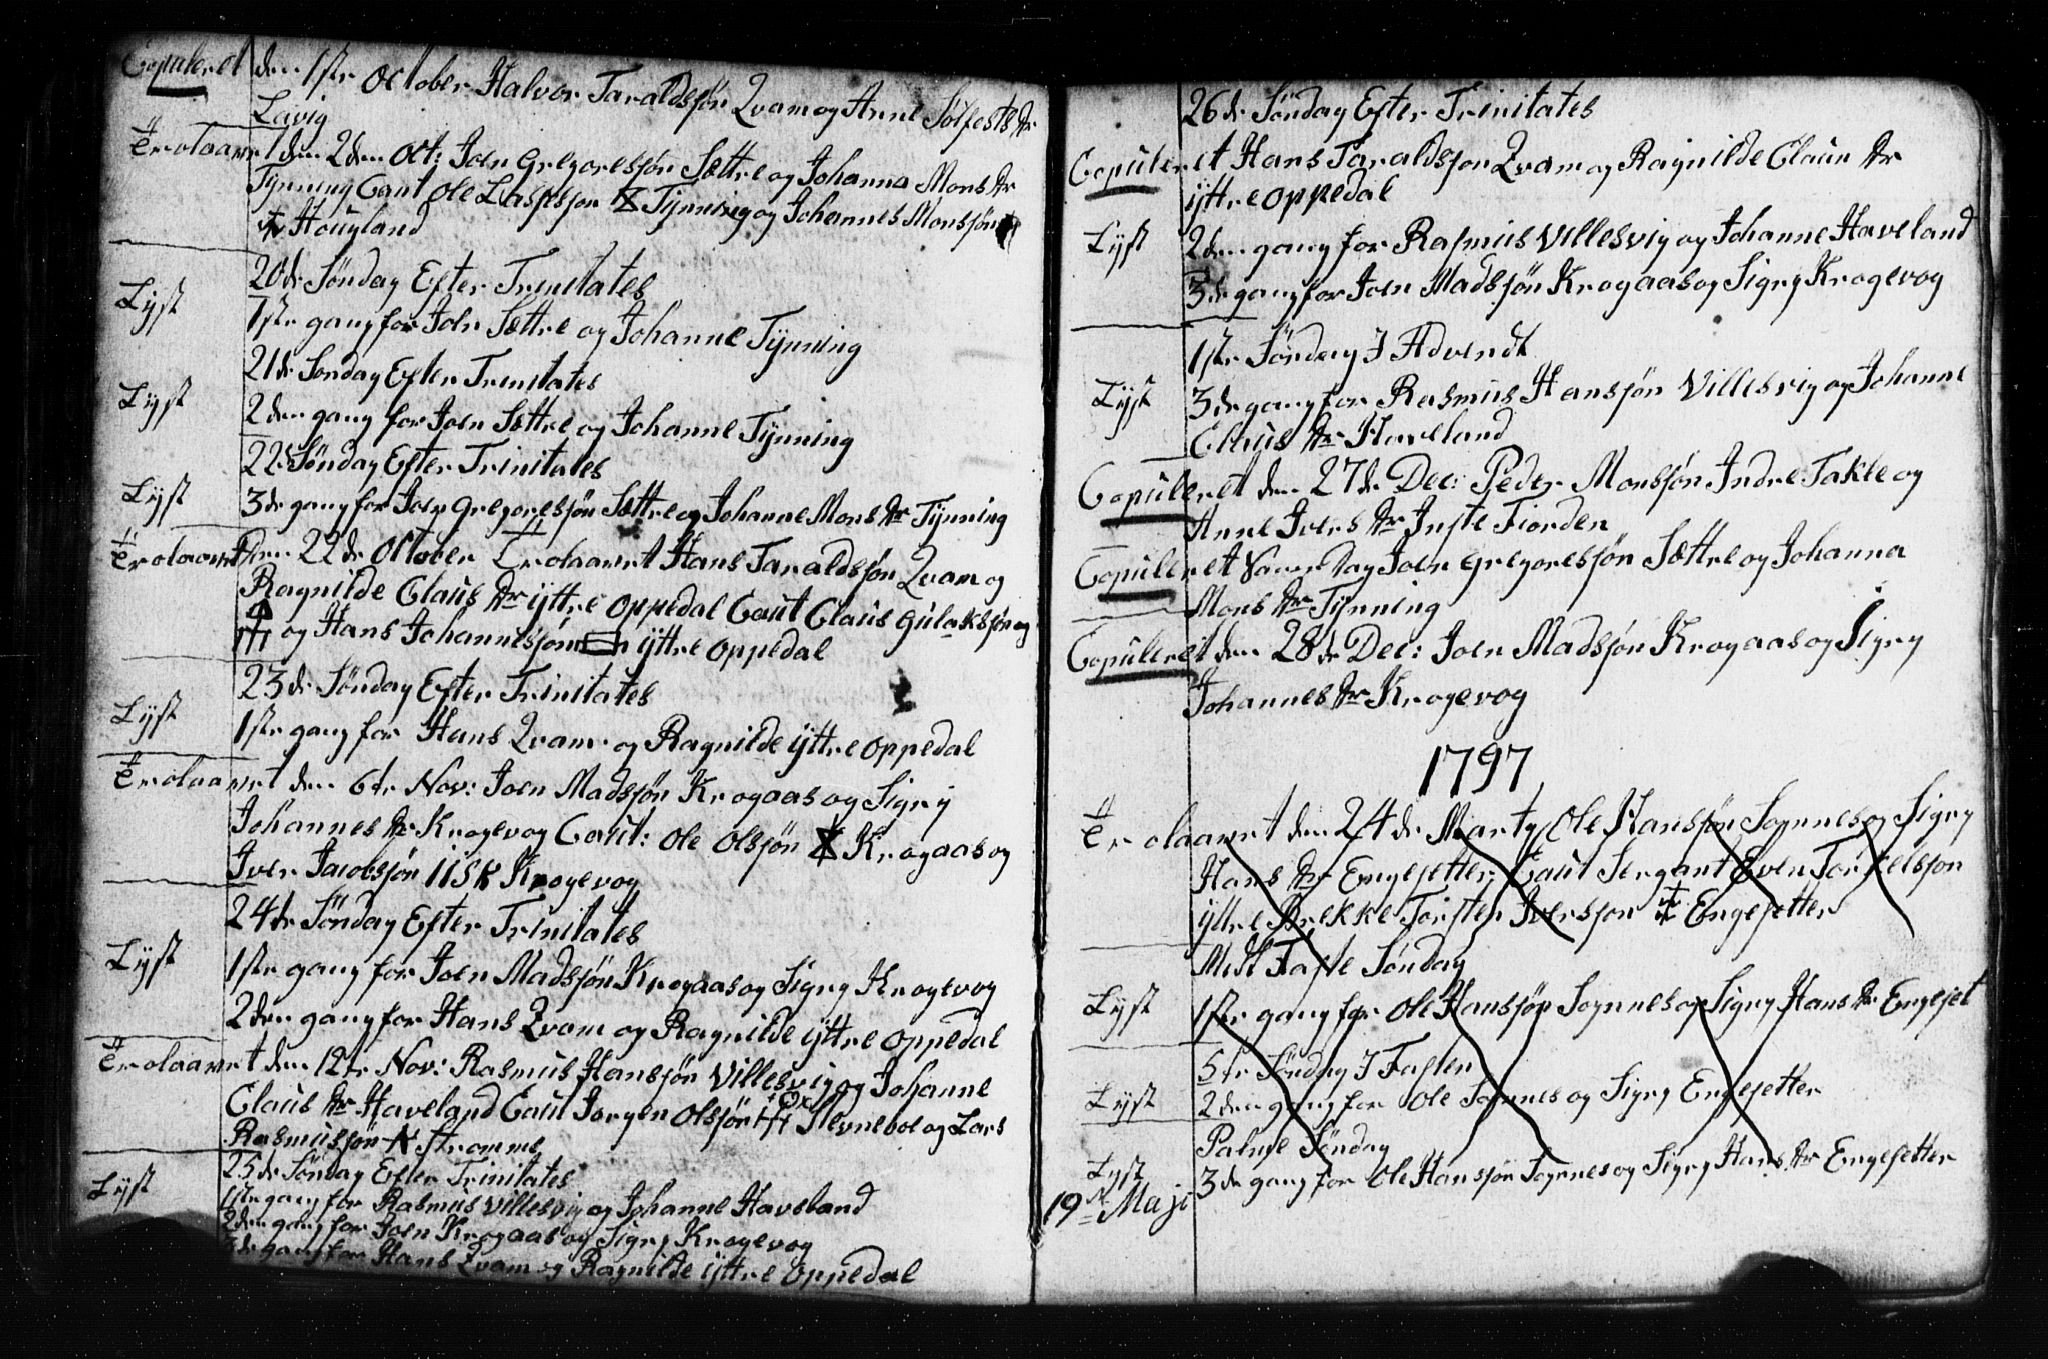 Copuleret den 1ste October Halvor Taraldsjøn Qvam og Anne Sølfests dr
Lavig
Trolaavet den 2den Oct: Joen Gregoresjøn Sættre og Johanna Mons dr
Tynning Caut Ole Lassesjøn Tynning og Johannes Monssjøn
Hougland
20de Søndag Efter Trinitates
Lyst 1ste gang for Joen Sættre og Johanne Tynning
21de Søndag Efter Trinitates
Lyst 2den gang for Joen Sættre og Johanne Tynning
22de Søndag Efter Trinitates
Lyst 3de gang for Joen Gregoresjøn Sættre og Johanne Mons dr Tynning
Trolaavet Den 22de October Trolaavet Hans Taraldsjøn Qvam og
Ragnilde Claus dr ijttre Oppedal Caut Claus Gulaksjøn
og Hans Johannesjøn ijttre Oppedal
23de Søndag Efter Trinitates
Lyst 1ste gang for Hans Qvam og Ragnilde ijttre Oppedal
Trolaavet den 6te Nov: Joen Madsjøn Krogaas og Sigrj
Johannes dr Krogevog Caut: Ole Olsjøn Krogaas og
Iver Jacobsjøn IISK Krogevog
24de Søndag Efter Trinitates
Lyst 1ste gang for Joen Madsjøn Krogaas og Sigrj Krogevog
2den gang for Hans Qvam og Ragnilde ijttre Oppedal
Trolaavet den 12te Nov: Rasmus Hansjøn Villesvig og Johanne
Claus dr Haveland Caut Jørgen Olsjøn Stevneboe og Lars
Rasmusjøn Stromme
25de Søndag Efter Trinitates
Lyst 1ste gang for Rasmus Villesvig og Johanne Haveland
2den gang for Joen Krogaas og Sigrj Krogevog
3de gang for Hans Qvam og Ragnilde ijttre Oppedal
26de Søndag Efter Trinitates
Copuleret Hans Taraldsjøn Qvam og Ragnilde Claus dr
ijttre Oppedal
Lyst 2den gang for Rasmus Villesvig og Johanne Haveland
3de gang for Joen Madsjøn Krogaas og Sigrj Krogevog
1ste Søndag I Advendt
Lyst 3de gang for Rasmus Hansjøn Villesvig og Johanne
Claus dr Haveland
Copuleret den 27de Dec: Peder Monsjøn Indre Takle og
Anne Ivers dr Inste Fiorden
Copuleret Dag Joen Gregoresjøn Sættre og Johanna
Mons dr Tynning
Copuleret den 28de Dec: Joen Madsjøn Krogaas og Sigrj
Johannes dr Krogevog
1797
Trolaavet den 24de Martj Ole Hansjøn Sognnes og Sigrj
Hans dr Engesetter Caut Sergant Even Torkelsjon
ijttre Brekke Torsten Iversjon Engesetter
Midt Faste Søndag
Lyst 1ste gang for Ole Hansjøn Sognnes og Sigrj Hans dr Engeset
5te Søndag I Fasten
Lyst 2den gang for Ole Sognnes og Sigrj Engesetter
Palme Søndag
Lyst 3de gang for Ole Hansjøn Sognnes og Sigrj Hans dr Engesetter
19 Maji